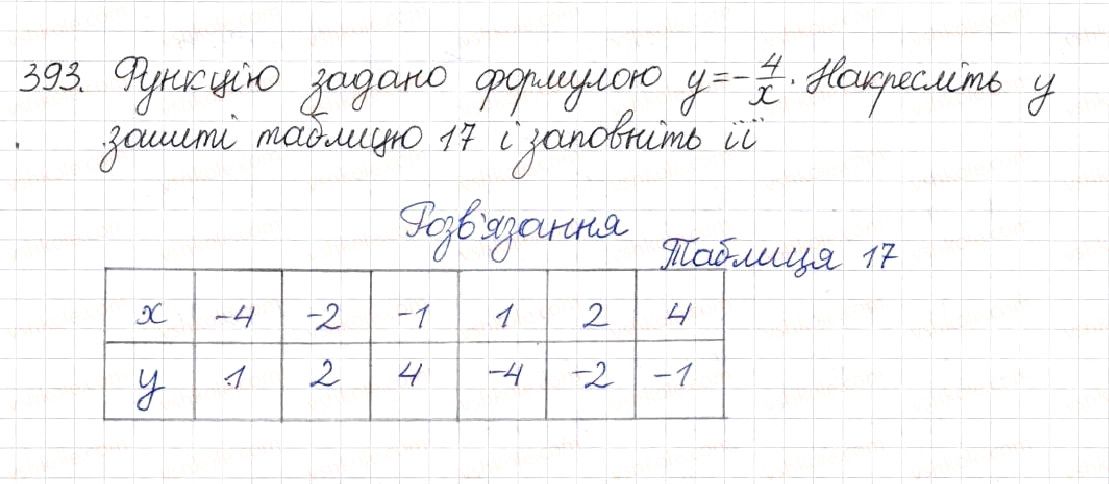 393. Функцію задано формулою y=-4/x. Накресліть у
зошиті таблицю 17 і заповніть її
Розв'язання
Таблиця 17
x -4 -2 -1 1 2 4
y 1 2 4 -4 -2 -1